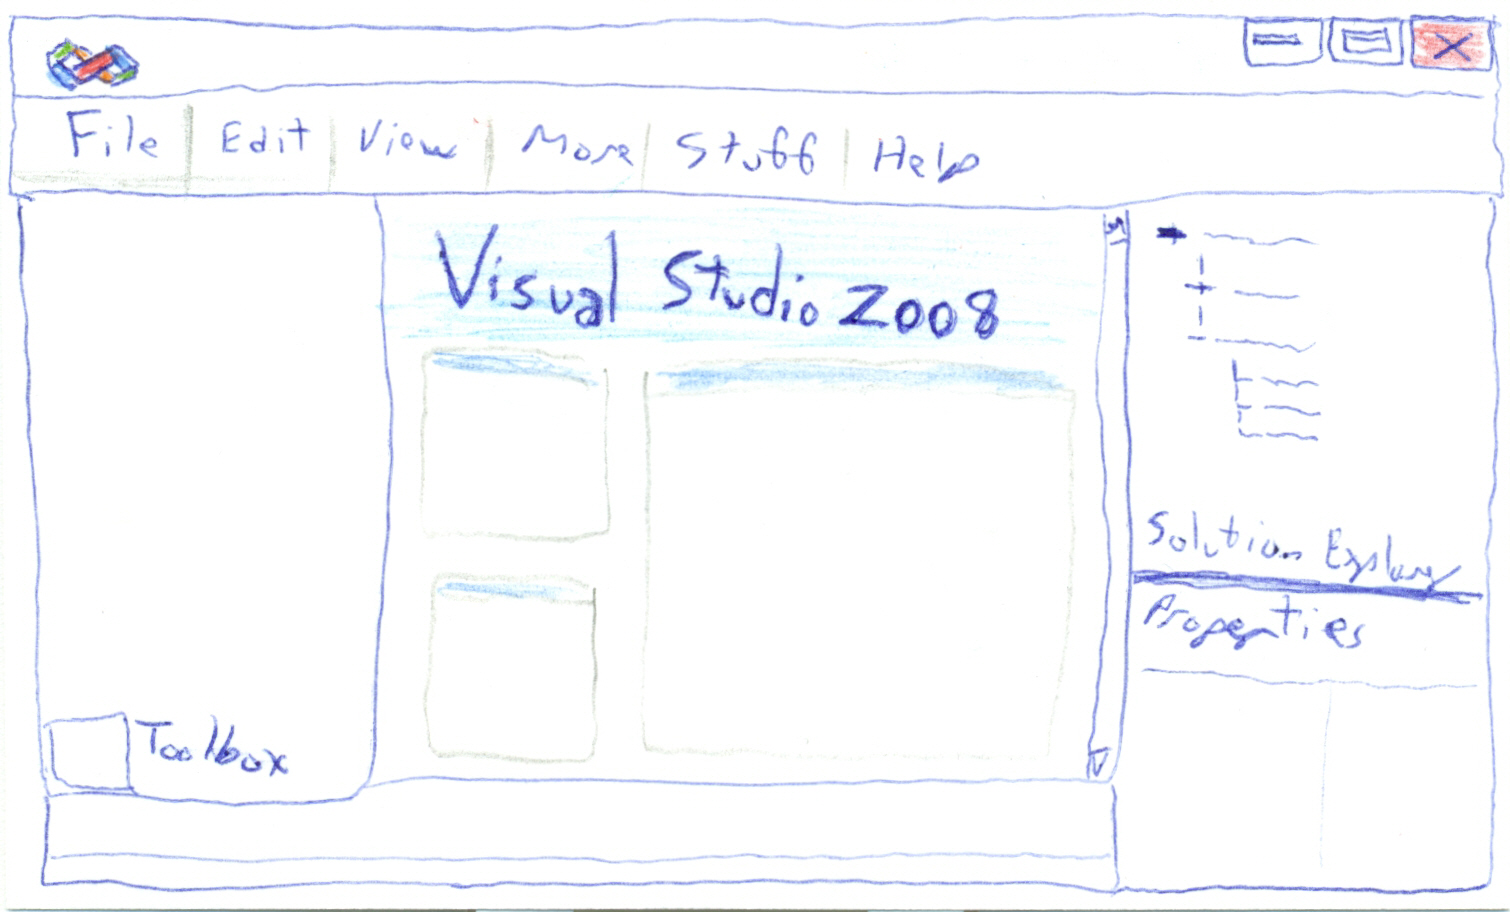 File Edit View More Stuff Help
Visual Studio 2008
Solution Explorer
Properties
Toolbox